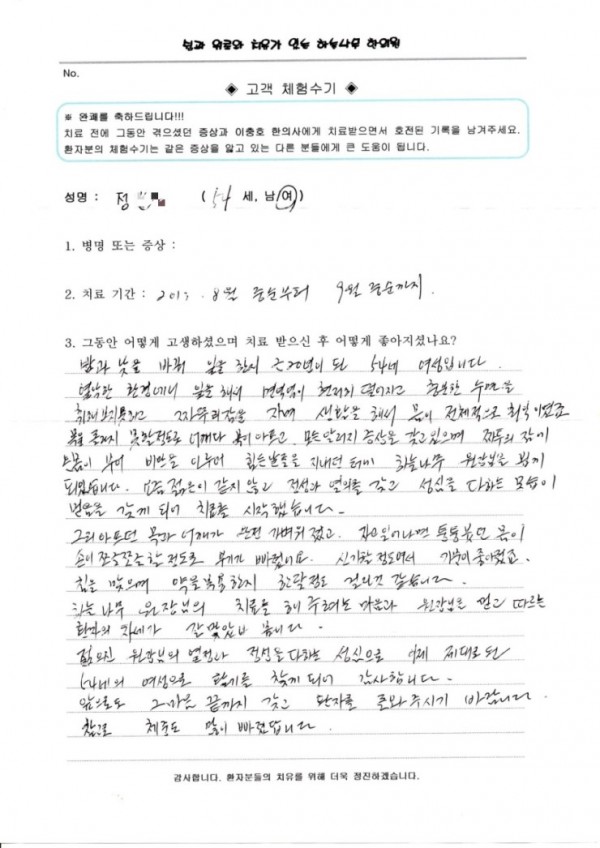 쉼과 위로와 치유가 있는 하늘나무 한의원
No.
◈ 고객 체험수기 ◈
※ 완쾌를 축하드립니다!!!
치료 전에 그동안 겪으셨던 증상과 이충호 한의사에게 치료받으면서 호전된 기록을 남겨주세요.
환자분의 체험수기는 같은 증상을 앓고 있는 다른 분들에게 큰 도움이 됩니다.
성명 : 정 ( 54 세, 남 여 )
1. 병명 또는 증상 :
2. 치료 기간 : 8월 중순부터 9월 중순까지.
3. 그동안 어떻게 고생하셨으며 치료 받으신 후 어떻게 좋아지셨나요?
밤과 낮을 바꿔 일을 한지 근20년이 된 54세 여성입니다.
열악한 환경에서 일을 해서 면역력이 현저히 떨어지고 충분한 수면을
취해보지못하고 자며 생활을 해서 몸이 전체적으로
목을 못할정도로 어깨와 목이 아프고 모든 증상을 갖고있으며 잠에
온몸이 부어 비만을 이루어 힘든날들을 지내던 터에 하늘나무 원장님을 뵙게
되었습니다. 요즘 젊은이 같지 않고 정성과 열의를 갖고 성심을 다하는 모습이
믿음을 갖게 되어 치료를 시작했습니다.
그리 아프던 목과 어깨가 가벼워졌고. 자고일어나면 퉁퉁붓던 몸이
손이 쪼글쪼글할 정도로 부기가 빠졌어요. 신기할 정도여서 기분이 좋아졌죠.
침을 맞으며 약을 복용한지 한달정도 걸린것 같습니다.
하늘나무 원장님의 치료를 해 주려는 마음과 원장님을 믿고 따르는
환자의 자세가 잘 맞았나 봅니다.
젊으신 원장님의 열정과 정성을 다하는 성심으로 이제 제대로 된
54세의 여성으로 활기를 찾게 되어 감사합니다.
앞으로도 그마음 끝까지 갖고 환자를 돌봐주시기 바랍니다.
참고로 체중도 많이 빠졌답니다.
감사합니다. 환자분들의 치유를 위해 더욱 정진하겠습니다.